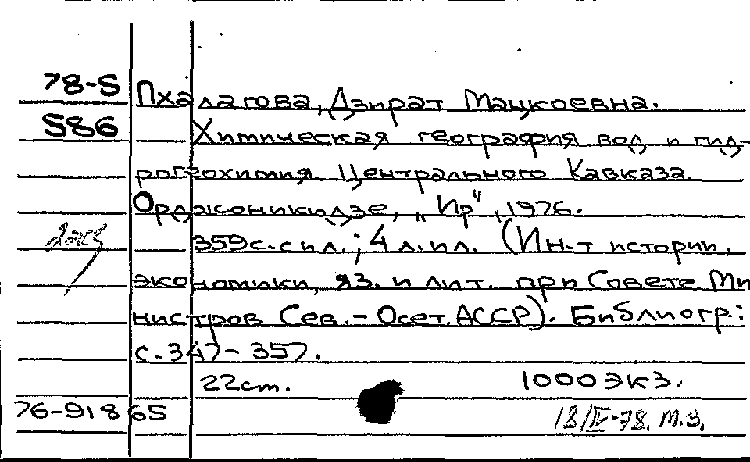 78-5 Пхалагова, Дзират Мацкоевна.
586 Химическая география вод и гид-
рогеохимия Центрального Кавказа.
Орджоникидзе, „Ир", 1976.
359с. с ил.; 4 л. ил. (Ин-т истории,
экономики, яз. и лит. при Совете Ми
нистров Сев.-Осет. АССР). Библиогр:
с. 347-357.
22см. 1000 экз.
76-91865
18/IV-78. М.З.